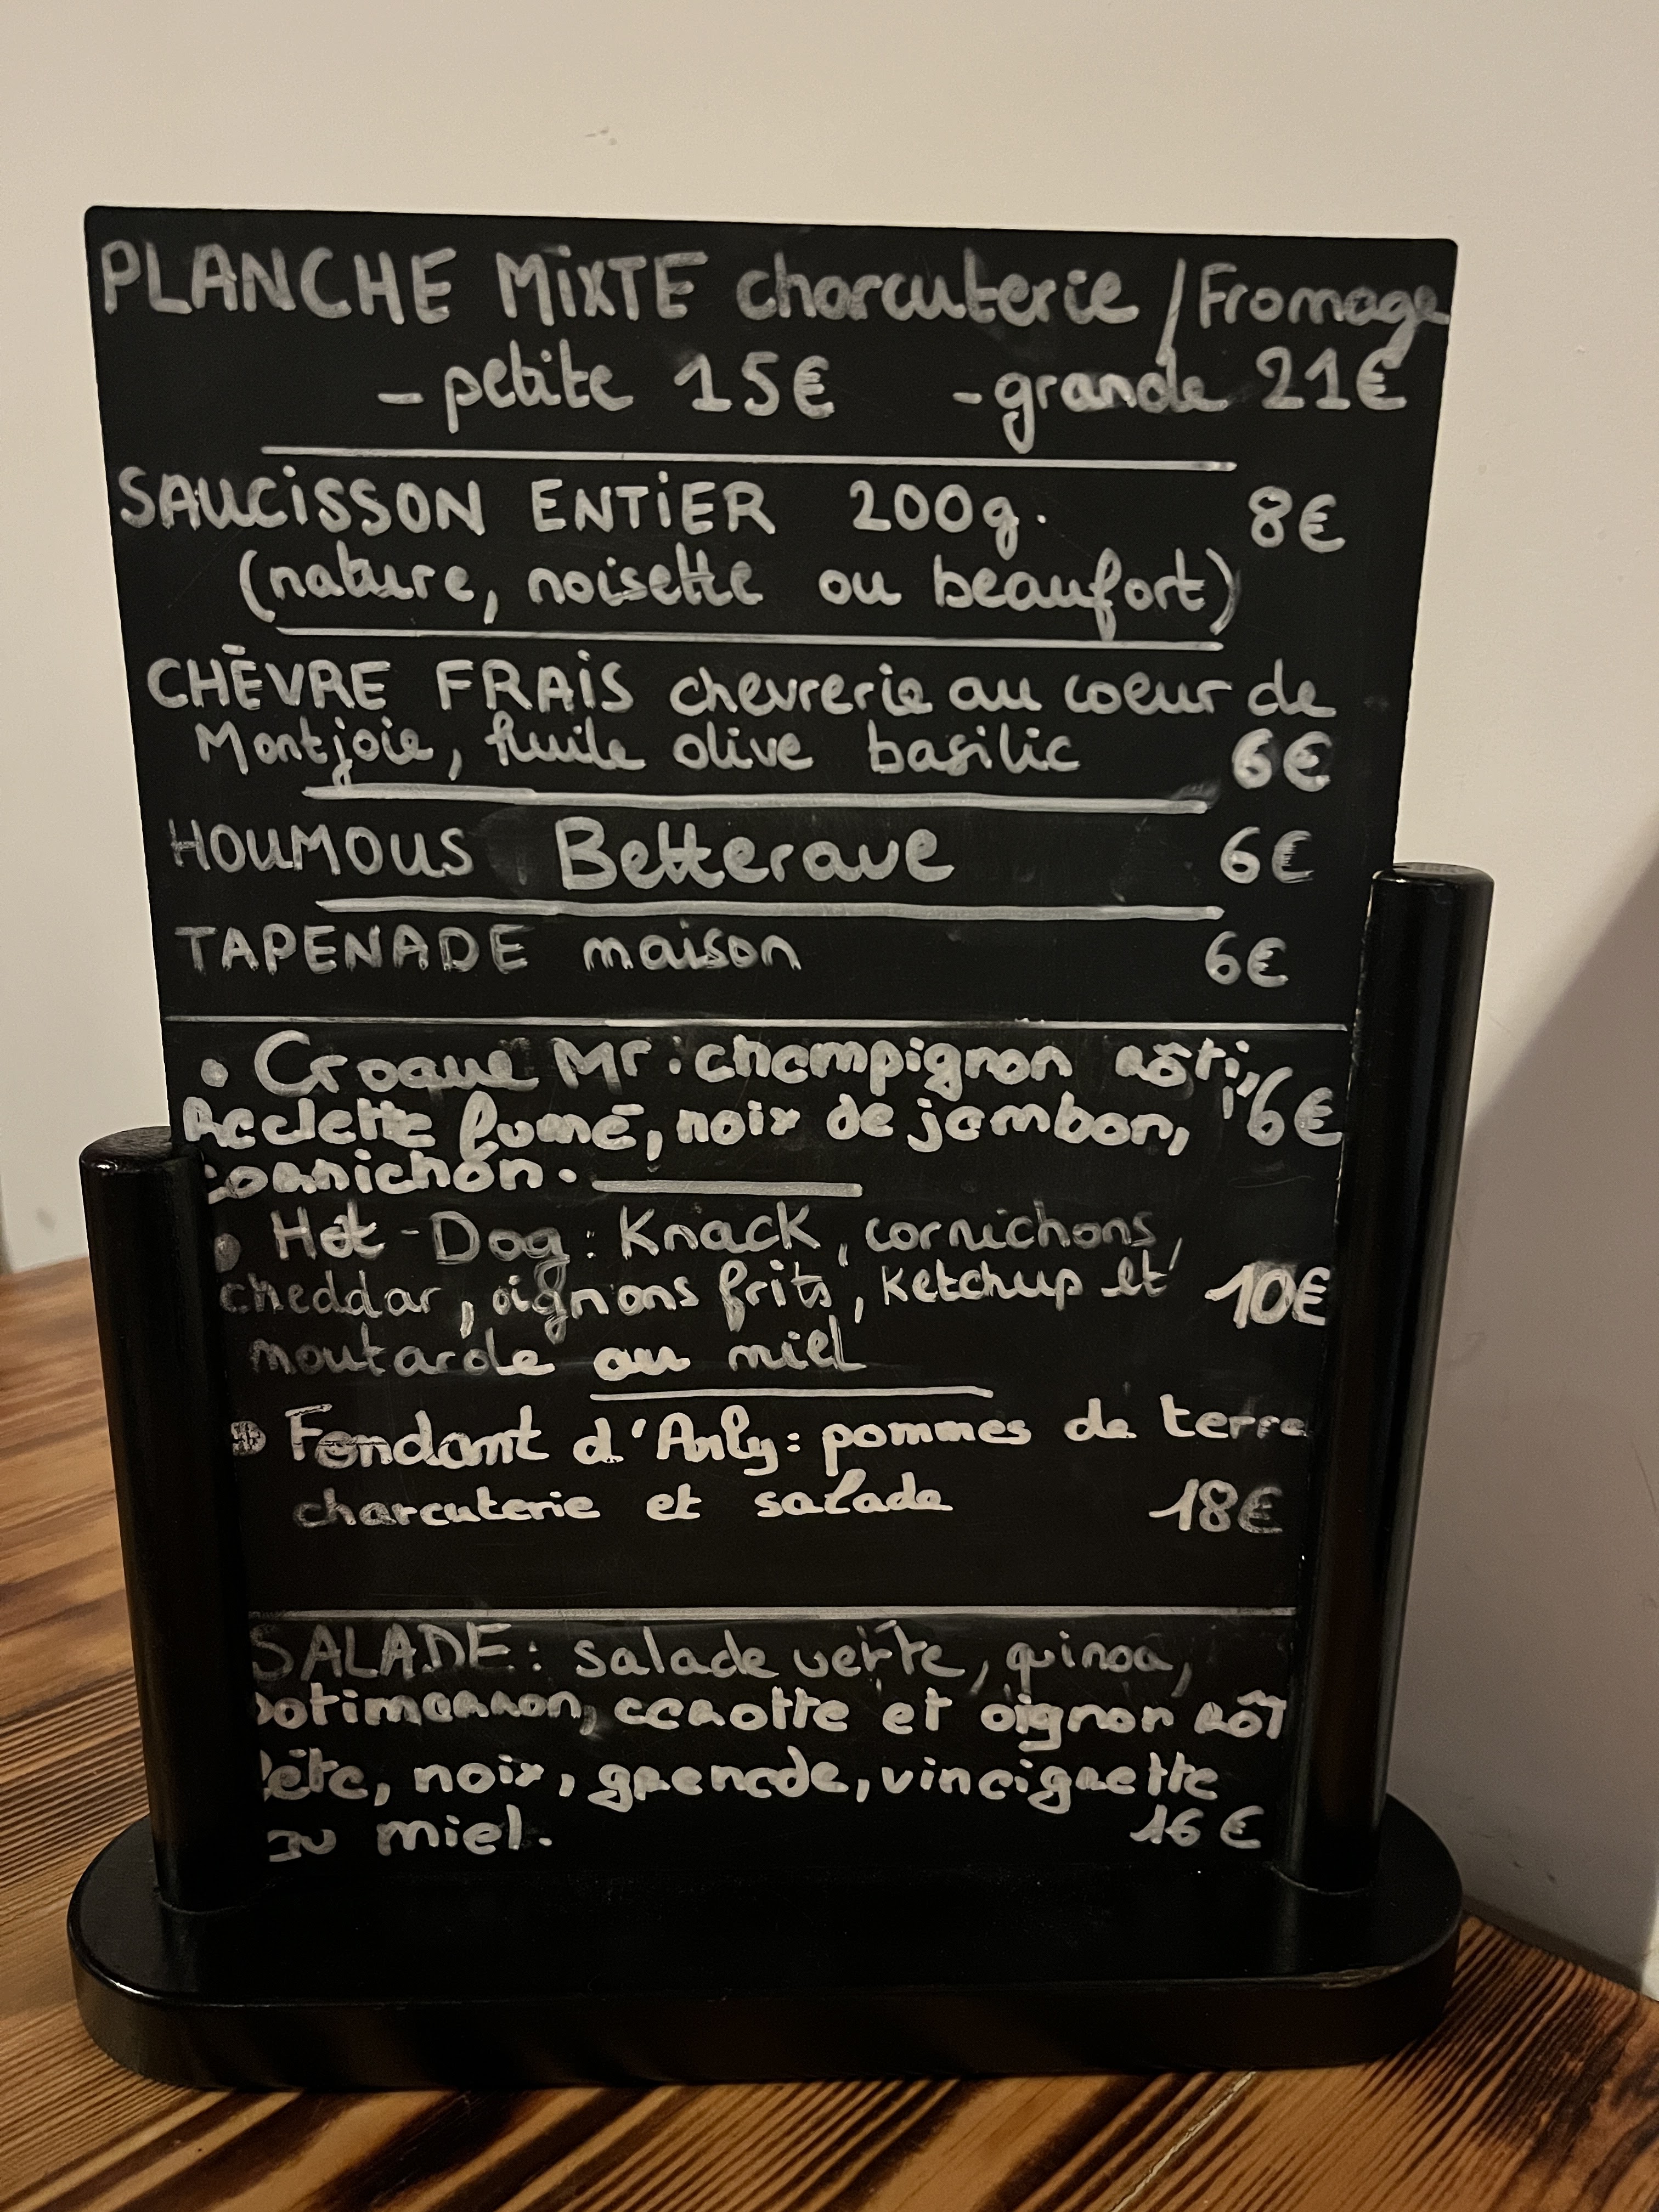 PLANCHE MiXTE charcuterie / Fromage
- petite 15€ - grande 21€
SAUCiSSON ENTiER 200g. 8€
(nature, noisette ou beaufort)
CHÈVRE FRAiS chevrerie au coeur de
Montjoie, huile olive basilic 6€
HOUMOUS Betterave 6€
TAPENADE maison 6€
• Croque Mr: champignon rôti,
Raclette fumé, noix de jambon, 6€
cornichon.
• Hot-Dog: Knack, cornichons,
cheddar, oignons frits, Ketchup et 10€
moutarde au miel
• Fondant d'Arly: pommes de terre
charcuterie et salade 18€
SALADE: salade verte, quinoa,
potimarron, carotte et oignon rôt
fête, noix, grenade, vinaigrette
au miel. 16€